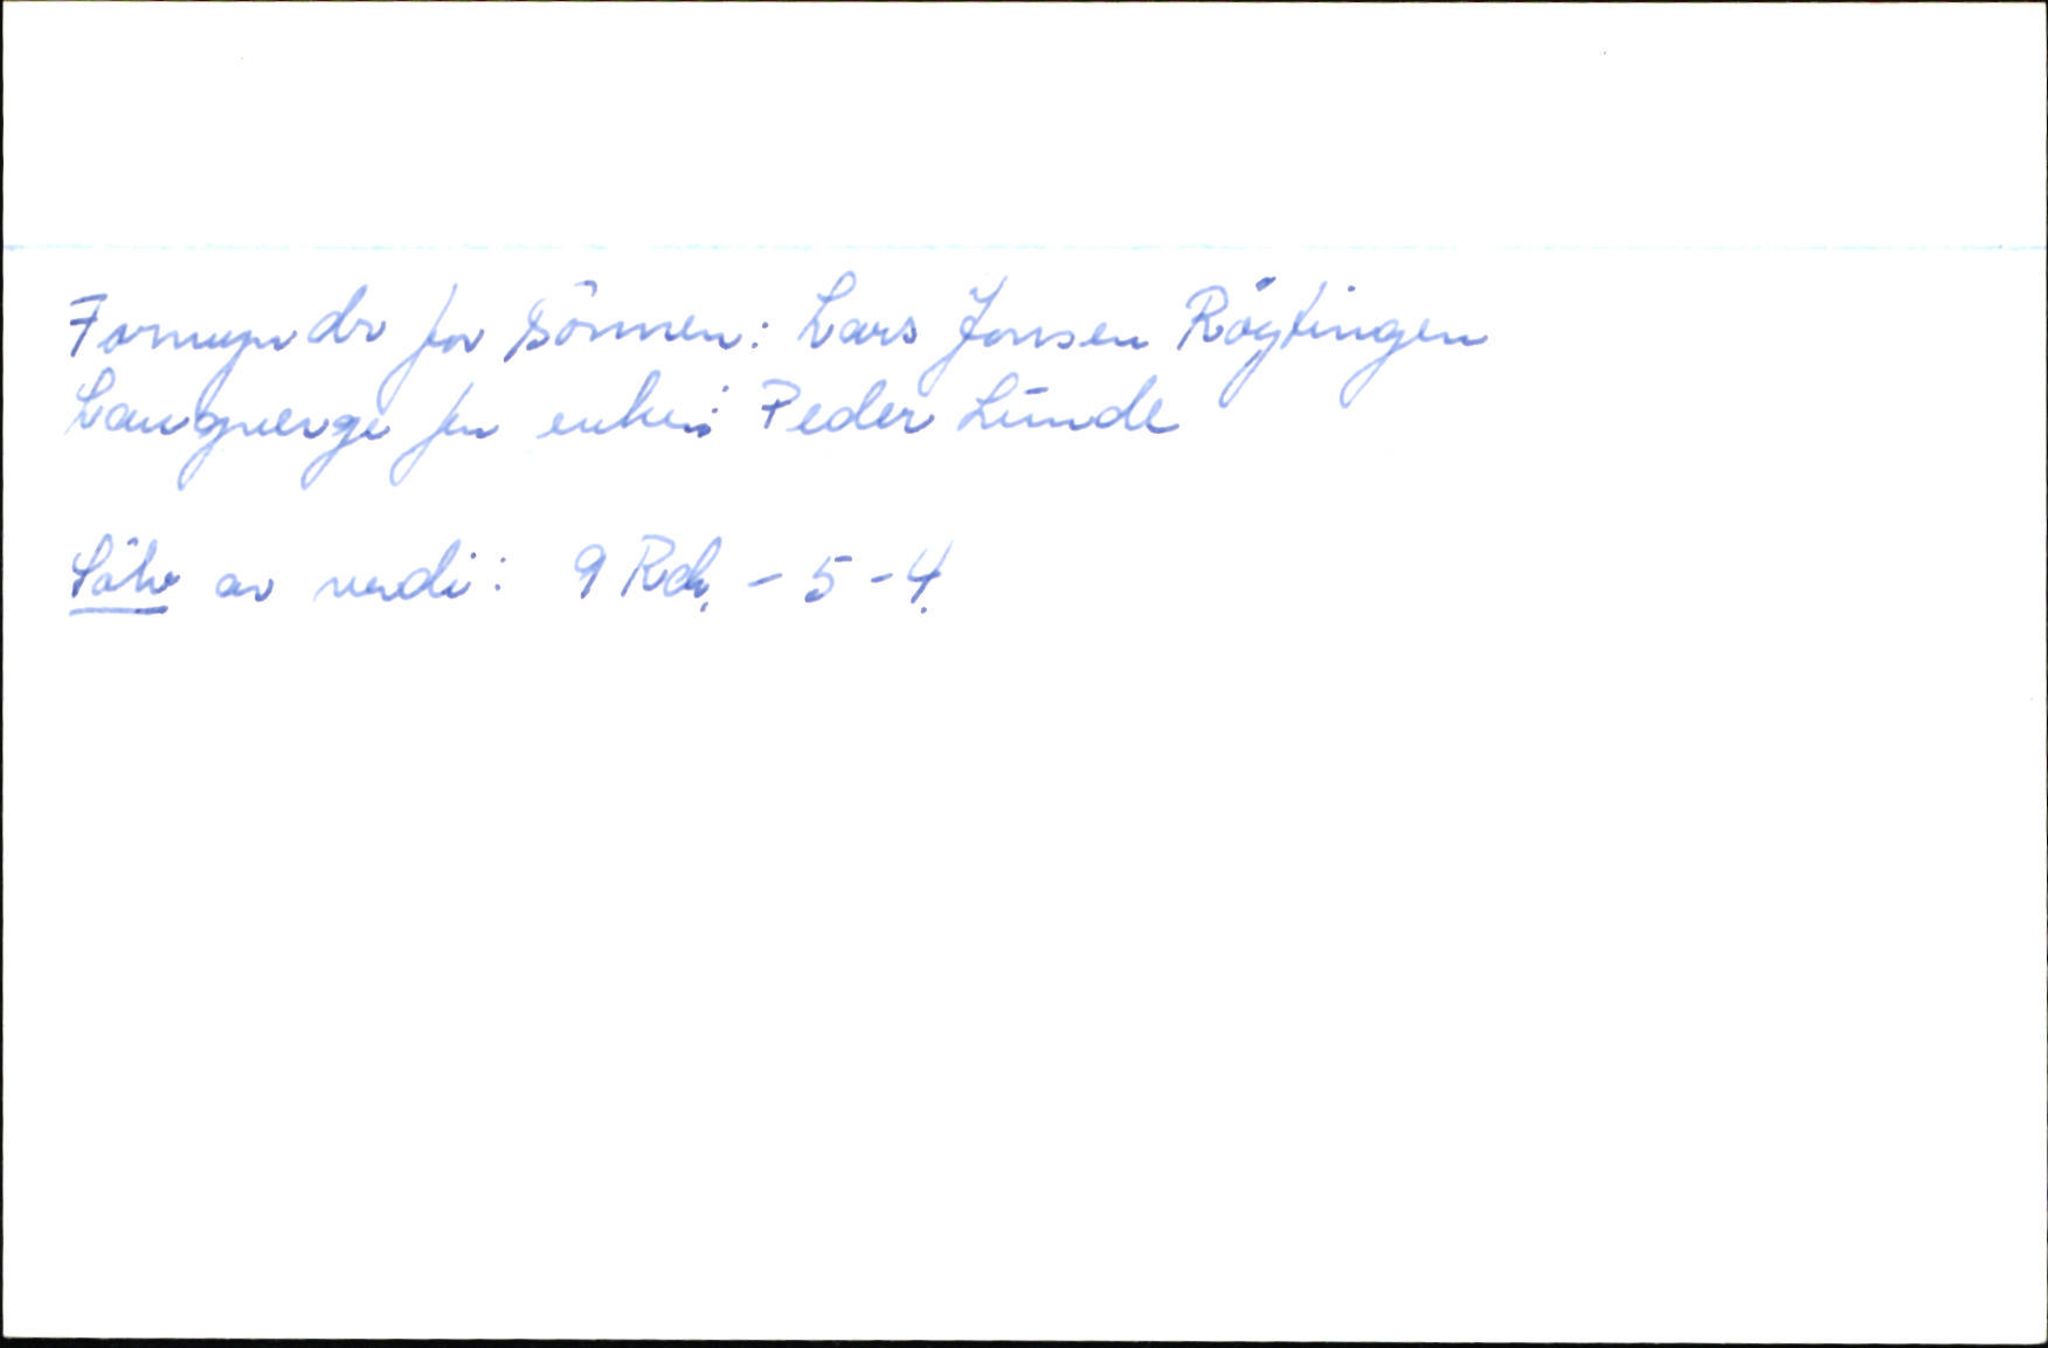 Formynder for sönnen: Lars Jonsen Röytingen
Laugverge for enken: Peder Lunde
Sölv av verdi: 9 Rdl. - 5 - 4.